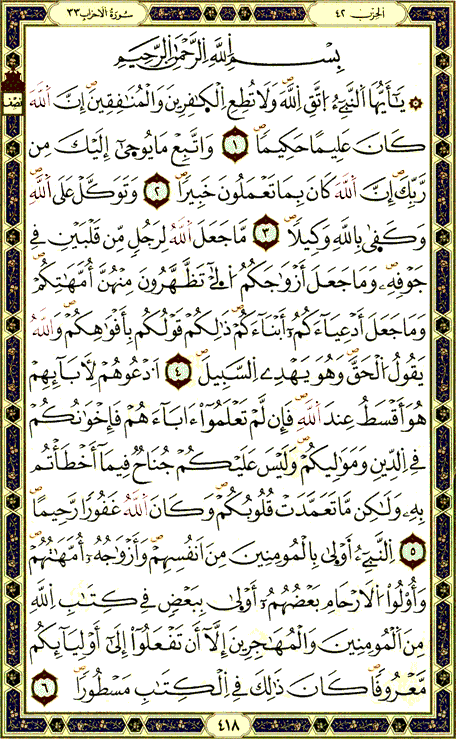 الحزب ٤٢
سُورَةُ الْاَحْزَابِ ٣٣
نصف
بِسْمِ اِ۬للَّهِ اِ۬لرَّحْمَٰنِ اِ۬لرَّحِيمِ
يَٰٓأَيُّهَا اَ۬لنَّبِيٓءُ اِ۪تَّقِ اِ۬للَّهَ وَلَا تُطِعِ اِ۬لْكٰ۪فِرِينَ وَالْمُنَٰفِقِينَۖ إِنَّ اَ۬للَّهَ
كَانَ عَلِيماً حَكِيماًۖ ١ وَاتَّبِعْ مَا يُوح۪يٰٓ إِلَيْكَ مِن
رَّبِّكَۖ إِنَّ اَ۬للَّهَ كَانَ بِمَا تَعْمَلُونَ خَبِيراًۖ ٢ وَتَوَكَّلْ عَلَى اَ۬للَّهِۖ
وَكَف۪يٰ بِاللَّهِ وَكِيلاًۖ ٣ مَّا جَعَلَ اَ۬للَّهُ لِرَجُلٍ مِّن قَلْبَيْنِ فِے
جَوْفِهِۦۖ وَمَا جَعَلَ أَزْوَٰجَكُمُ اُ۬لَّٰٓـِٔے تَظَّهَّرُونَ مِنْهُنَّ أُمَّهَٰتِكُمْۖ
وَمَا جَعَلَ أَدْعِيَآءَكُمُۥٓ أَبْنَآءَكُمْۖ ذَٰلِكُمْ قَوْلُكُم بِأَفْوَٰهِكُمْۖ وَاللَّهُ
يَقُولُ اُ۬لْحَقَّۖ وَهُوَ يَهْدِے اِ۬لسَّبِيلَۖ ٤ اَ۟دْعُوهُمْ لِأٓبَآئِهِمْ
هُوَ أَقْسَطُ عِندَ اَ۬للَّهِۖ فَإِن لَّمْ تَعْلَمُوٓاْ ءَابَآءَهُمْ فَإِخْوَٰنُكُمْ
فِے اِ۬لدِّينِ وَمَوَٰلِيكُمْۖ وَلَيْسَ عَلَيْكُمْ جُنَاحٞ فِيمَآ أَخْطَأْتُم
بِهِۦۖ وَلَٰكِن مَّا تَعَمَّدَتْ قُلُوبُكُمْۖ وَكَانَ اَ۬للَّهُ غَفُوراً رَّحِيماًۖ
٥ اِ۬لنَّبِيٓءُ اَوْل۪يٰ بِالْمُومِنِينَ مِنَ اَنفُسِهِمْۖ وَأَزْوَٰجُهُۥٓ أُمَّهَٰتُهُمْۖ
وَأُوْلُواْ اُ۬لَارْحَامِ بَعْضُهُمُۥٓ أَوْل۪يٰ بِبَعْضٖ فِے كِتَٰبِ اِ۬للَّهِ
مِنَ اَ۬لْمُومِنِينَ وَالْمُهَٰجِرِينَ إِلَّآ أَن تَفْعَلُوٓاْ إِلَىٰٓ أَوْلِيَآئِكُم
مَّعْرُوفاًۖ كَانَ ذَٰلِكَ فِے اِ۬لْكِتَٰبِ مَسْطُوراًۖ ٦
٤١٨